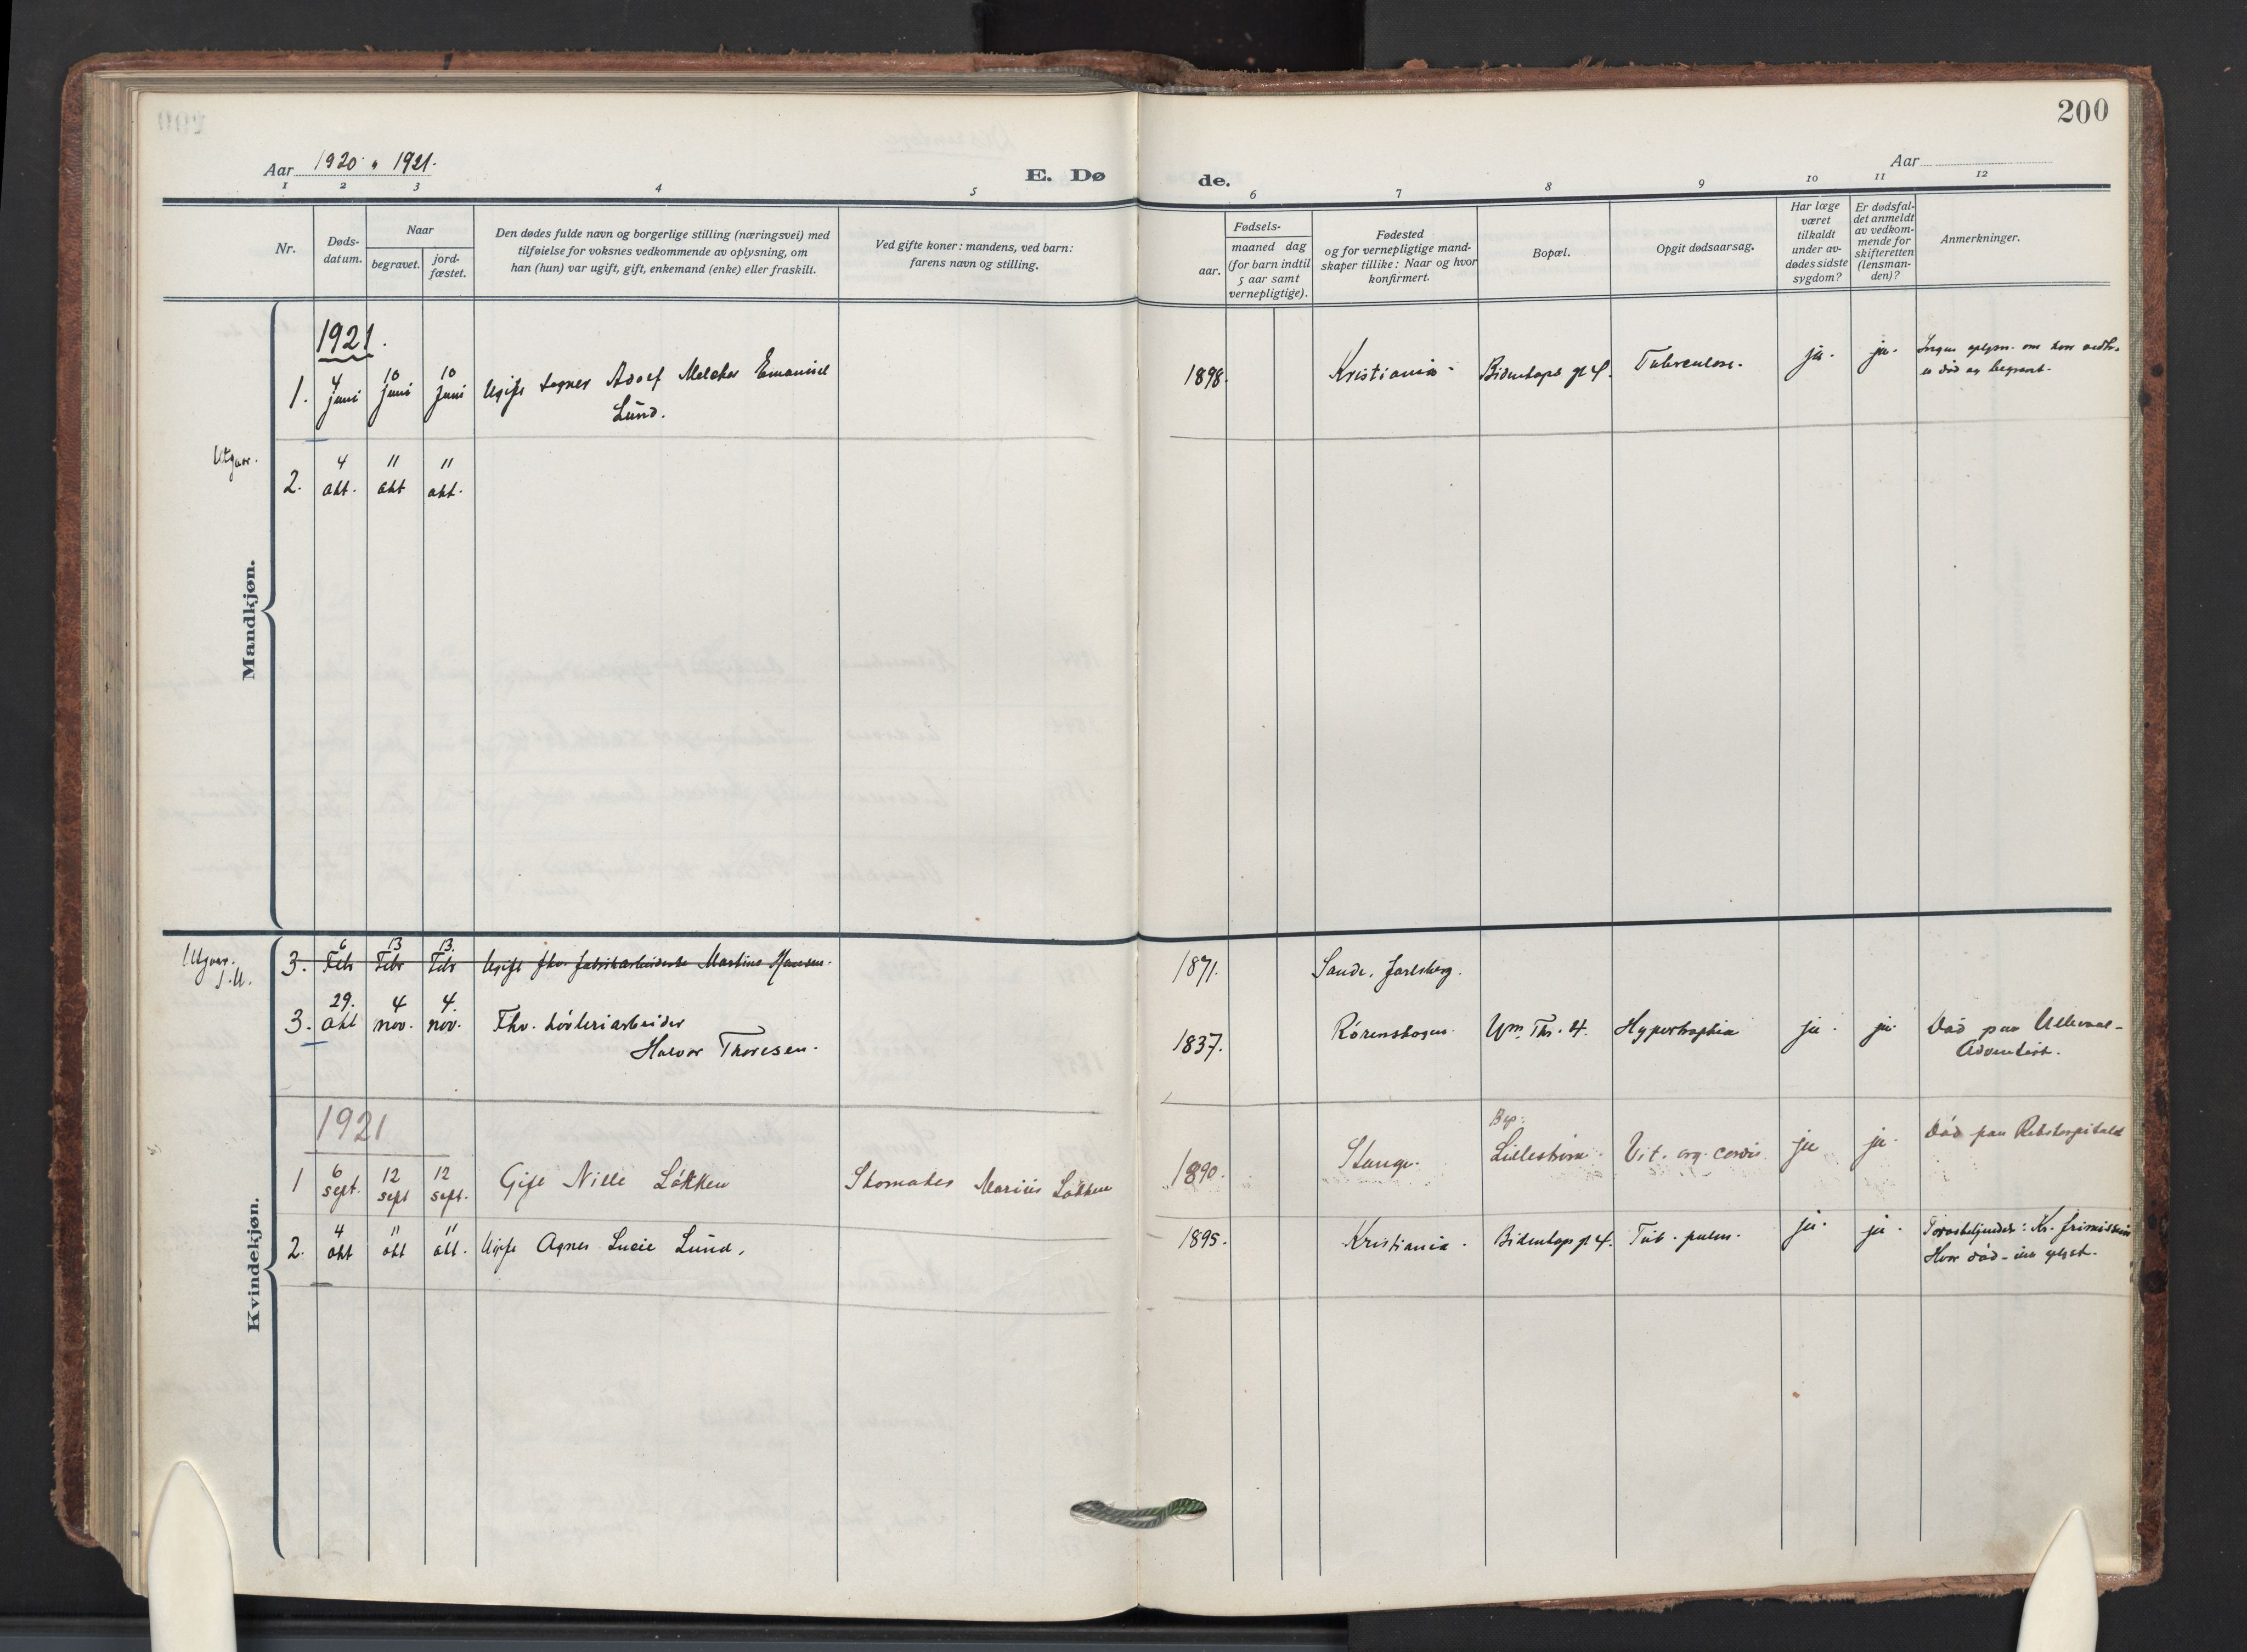 200
Aar 1920 " 1921.
E. Døde.
Aar
1 2 3 4 5 6 7 8 9 10 11 12
Nr.
Døds-
datum.
Naar
begravet.
jord-
fæstet.
Den dødes fulde navn og borgerlige stilling (næringsvei) med
tilføielse for voksnes vedkommende av oplysning, om
han (hun) var ugift, gift, enkemand (enke) eller fraskilt.
Ved gifte koner: mandens, ved barn:
farens navn og stilling.
Fødsels-
aar.
maaned dag
(for barn indtil
5 aar samt
vernepligtige).
Fødested
og for vernepligtige mand-
skaper tillike: Naar og hvor
konfirmert.
Bopæl.
Opgit dødsaarsag.
Har læge
været
tilkaldt
under av-
dødes sidste
sygdom?
Er dødsfal-
det anmeldt
av vedkom-
mende for
skifteretten
(lensman-
den)?
Anmerkninger.
Mandkjøn.
1921.
1. 4 juni 10 juni 10 juni Ugift Adolf Emanuel
Lund.
1898. Kristiania. 4. Tuberculose. ja. ja. om hvor
er død og begravet.
Utgaar.
2. 4 okt. 11 okt 11 okt.
Kvindekjøn.
Utgaar.
3. 6 Febr 13 Febr 13. Febr Ugift fhv. fabrikarbeiderske Martine Hansen.
1871. Sande, Jarlsberg.
3. 29. okt 4 nov. 4. nov. Fhv. arbeider
Halvor Thoresen.
1837. 4. Hypertrophia ja. ja. Død paa Ullevaal-
Adventist.
1921
1 6 sept. 12 sept 12 sept. Gift Løkken Marius Løkken
1890. Stange. Lillestrøm. Vit. org. cordis ja ja. Død paa Rikshospitalet
2. 4 okt 11 okt 11 okt. Ugift Agnes Lucie Lund.
1895. Kristiania. 4. Tub. pulm. ja. ja.
Hvor død